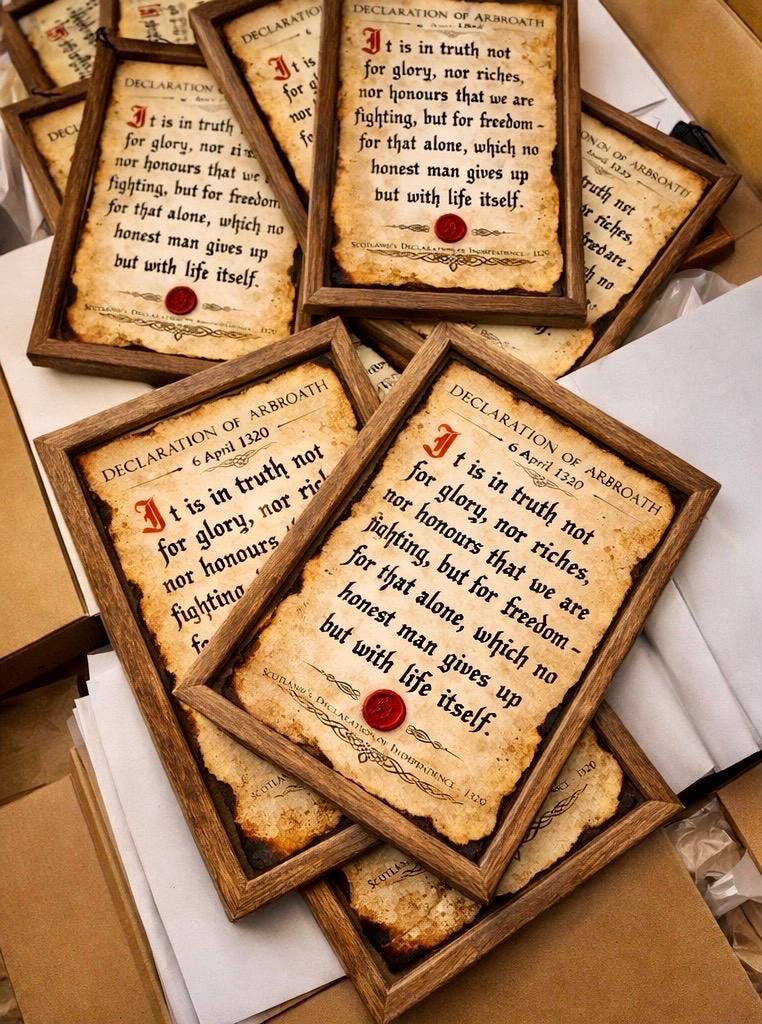 DECLARATION OF ARBROATH
It is in truth not
for glory, nor riches,
nor honours that we are
fighting, but for freedom –
for that alone, which no
honest man gives up
but with life itself.
SCOTLAND'S DECLARATION OF INDEPENDENCE - 1320
DECLARATION
It is
for gl
DECLARATION O
It is in truth
for glory, nor ri
nor honours that we
fighting, but for freedom
for that alone, which no
honest man gives up
but with life itself.
1320
DECL
OF ARBROATH
truth not
or riches,
no
DECLARATION OF ARBROATH
6 April 1320
It is in truth not
for glory, nor ric
nor honours
fighting
SCOTL
DECLARATION OF ARBROATH
6 April 1320
It is in truth not
for glory, nor riches,
nor honours that we are
fighting, but for freedom –
for that alone, which no
honest man gives up
but with life itself.
SCOTLAND'S DECLARATION OF INDEPENDENCE - 1320
SCOTLA
1320